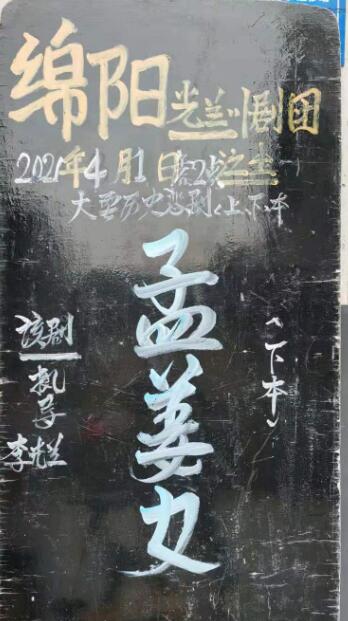 绵阳光兰川剧团
2021年4月1日 之生
大型历史悲剧《上、下本
孟姜女
(下本)
该剧
执导
李光兰